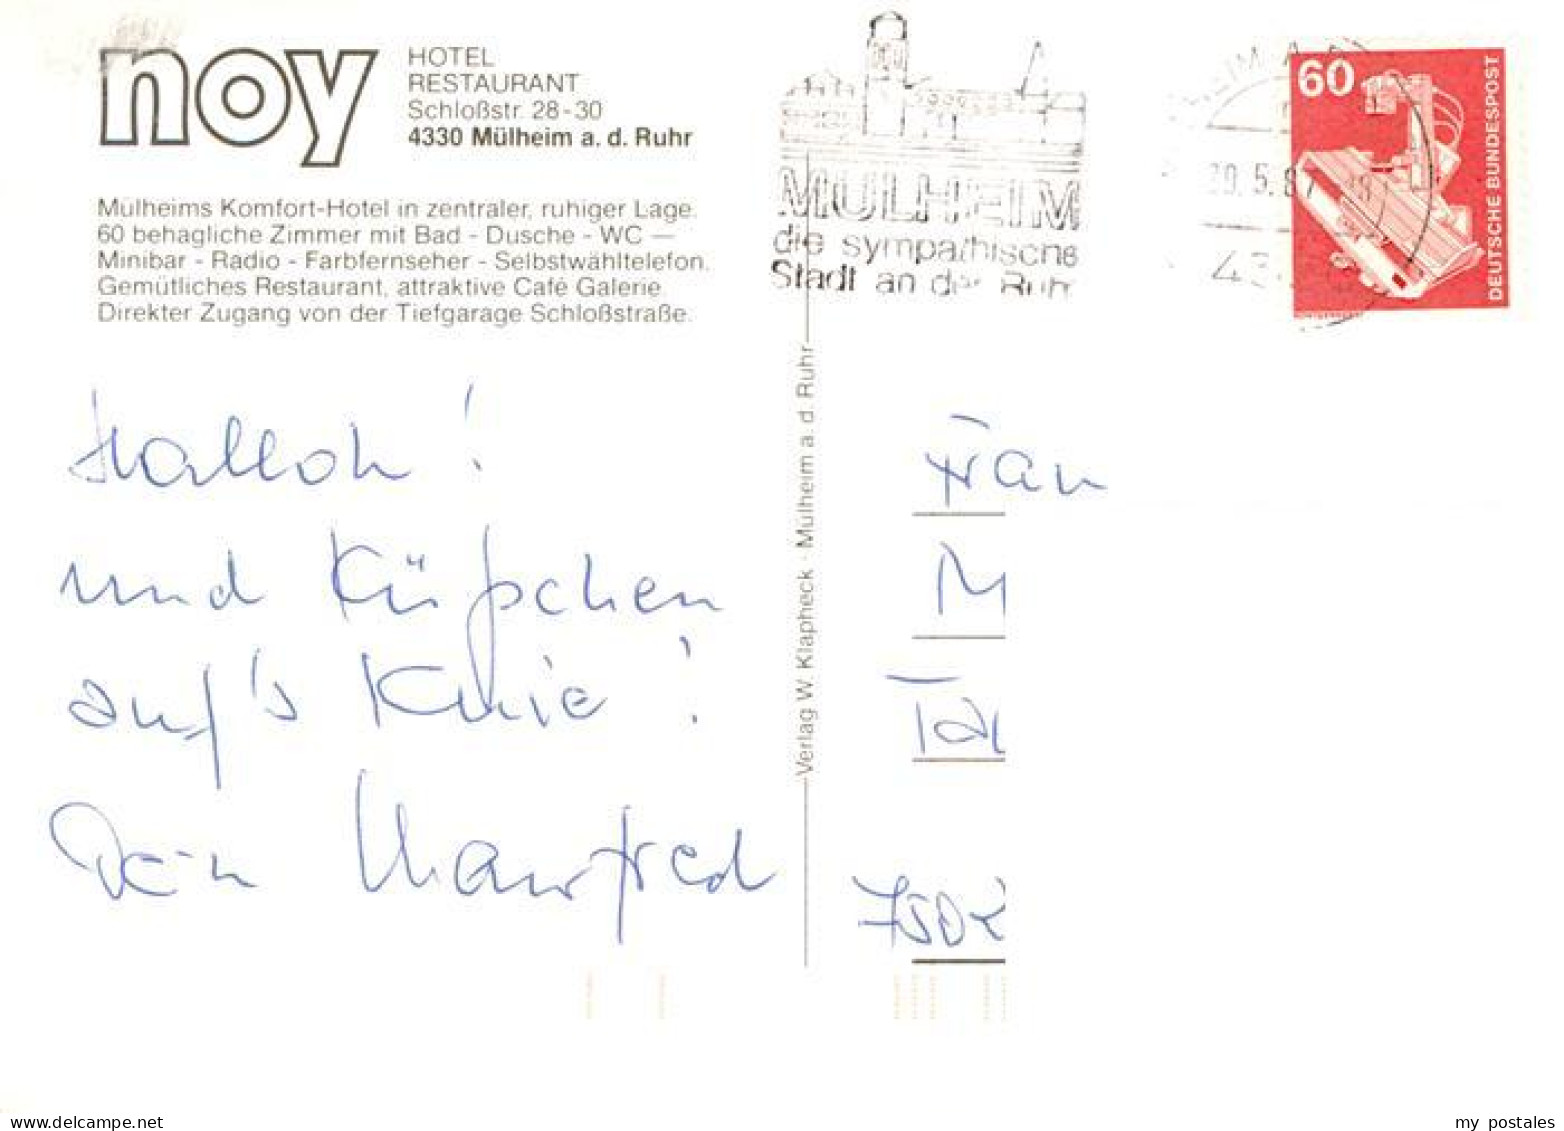 noy
HOTEL
RESTAURANT
Schloßstr. 28-30
4330 Mülheim a. d. Ruhr
Mülheims Komfort-Hotel in zentraler, ruhiger Lage.
60 behagliche Zimmer mit Bad - Dusche - WC —
Minibar - Radio - Farbfernseher - Selbstwähltelefon.
Gemütliches Restaurant, attraktive Café Galerie
Direkter Zugang von der Tiefgarage Schloßstraße.
MÜLHEIM
die sympathische
Stadt an der Ruhr
60
DEUTSCHE BUNDESPOST
Halloh!
und Küßchen
auf's Knie!
Dein Manfred
Verlag W. Klapheck · Mülheim a. d. Ruhr
Frau
M
7502
www.delcampe.net
my postales